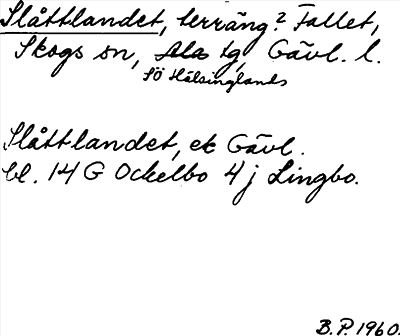 Slåttlandet, terräng? Fallet,
Skogs sn, Ala tg, Gävl. l.
Sö Hälsinglands
Slåttlandet, ek Gävl.
bl. 14 G Ockelbo 4 j Lingbo.
B.P. 1960.